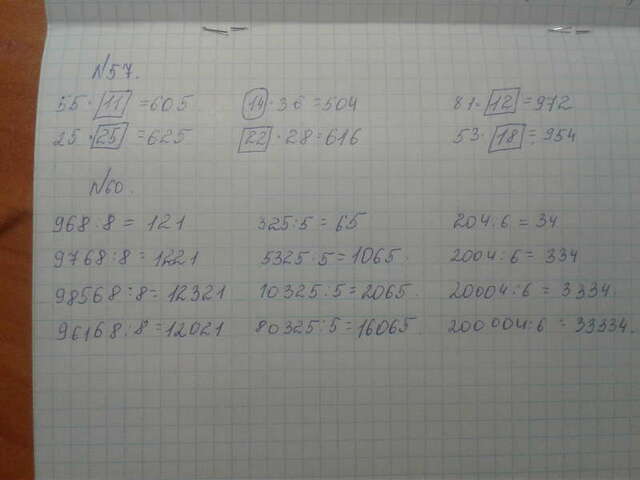 N57.
55 · 11 = 605 14 · 36 = 504 81 · 12 = 972
25 · 25 = 625 22 · 28 = 616 53 · 18 = 954
N60.
968 : 8 = 121 325 : 5 = 65 204 : 6 = 34
9768 : 8 = 1221 5325 : 5 = 1065. 2004 : 6 = 334
98568 : 8 = 12321 10325 : 5 = 2065. 20004 : 6 = 3334.
96168 : 8 = 12021 80325 : 5 = 16065. 200004 : 6 = 33334.